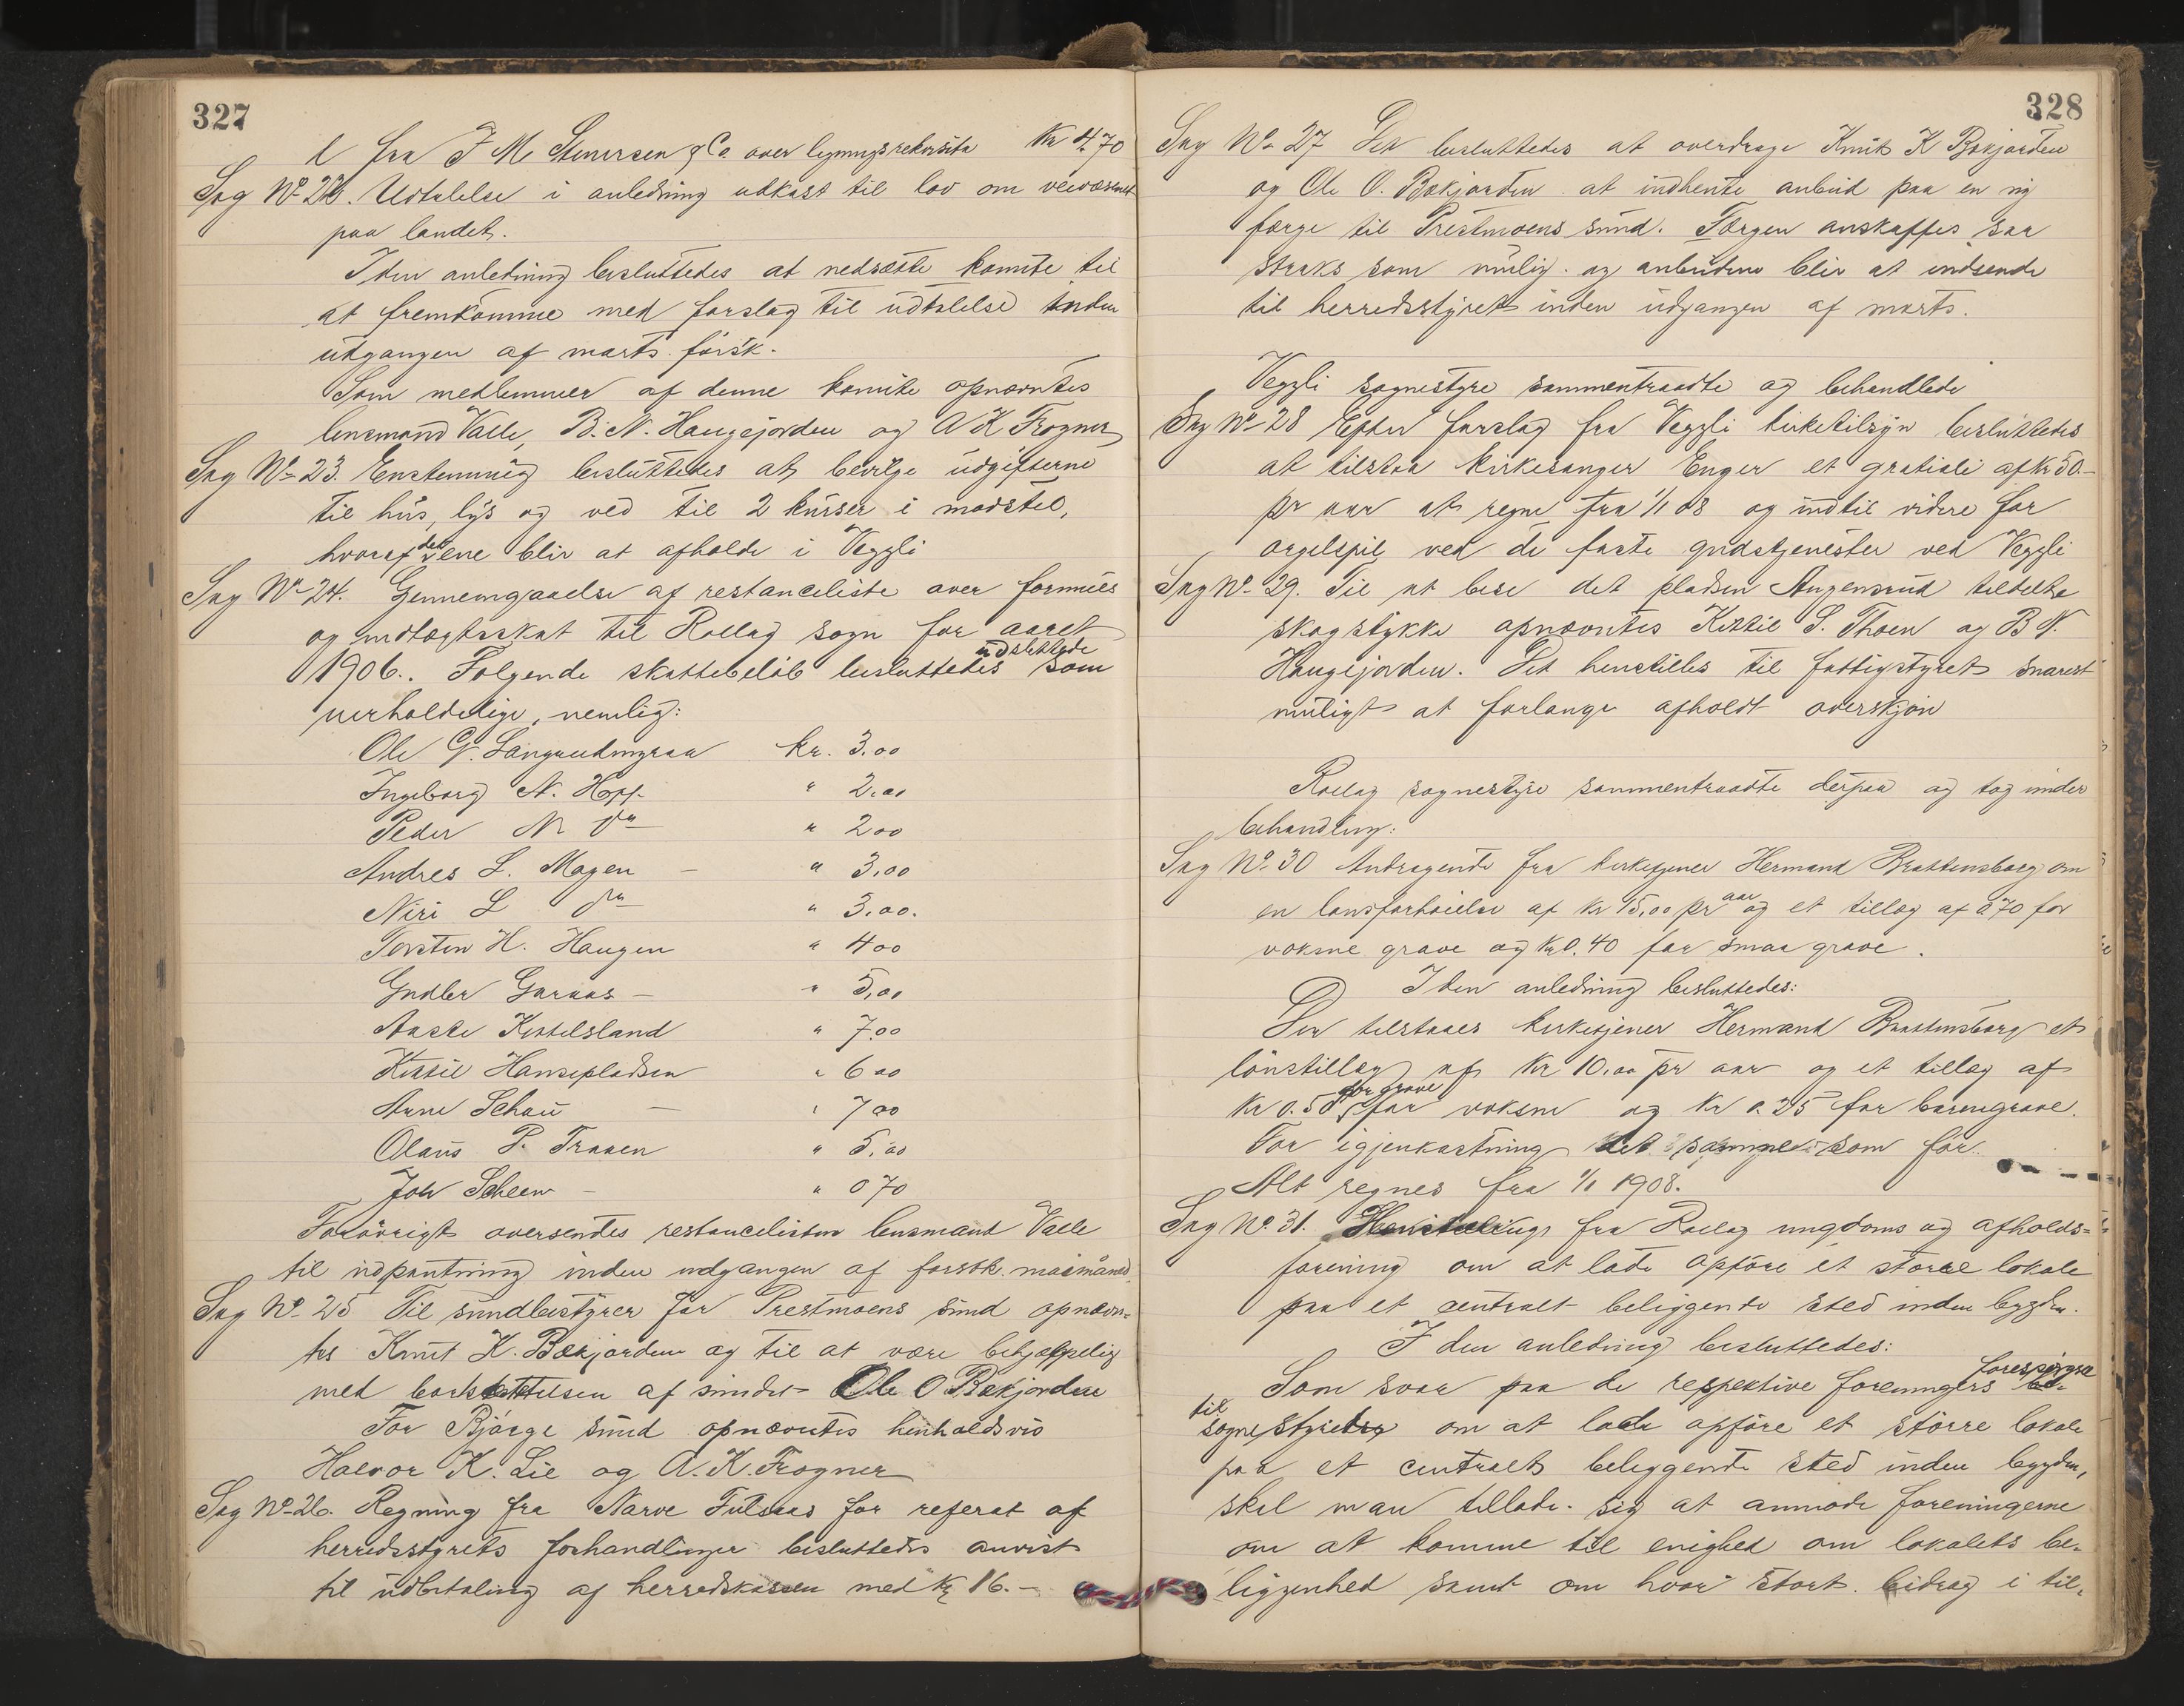 327
fra J M Stenersen & Co over ligningsrekvisita Kr 4,70
Sag No 22. Udtalelse i anledning udkast til lov om veivæsenet
paa landet.
I den anledning besluttedes at nedsætte komite til
at fremkomme med forslag til udtalelse inden
udgangen af marts førstk.
Som medlemmer af denne komite opnævntes
lensmand Valle, B. N. Haugejorden og A K Frogner
Sag No 23. Enstemmig besluttedes at bevilge udgifterne
til hus, lys og ved til 2 kurser i madstel,
hvoraf det ene blir at afholde i Veggli
Sag No 24. Gennemgaaelse af restanceliste over formues
og indtægtsskat til Rollag sogn for aaret
1906. Følgende skattebeløb besluttedes udslettede som
uerholdelige, nemlig:
Ole G. kr. 3.00
Ingeborg N. Hopp. " 2.00
Peder N do " 2 00
Andres L. Mogen - " 3,00
Niri L do " 3.00.
Torsten H. Haugen " 4 00
Gudler Garaas - " 5,00
Aaste Kittelsland " 7.00
Kittil Hansepladsen " 6 00
Arne Schou - " 7 00
Olaus P. Traaen " 5,00
Joh Scheen - " 0 70
Forøvrigt oversendes restancelisten lensmand Valle
til udpantning inden udgangen af førstk. maimåned.
Sag No 25 Til sundbestyrer for Prestmoens sund opnævn-
tes Knut K. Bækjorden og til at være behjælpelig
med bortsættelsen af sundet Ole O Bekjorden
For Bjørge sund opnævntes henholdsvis
Halvor K. Lie og A. K. Frogner
Sag No 26. Regning fra Narve Fulsaas for referat af
herredsstyrets forhandlinger besluttedes anvist
til udbetaling af herredskassen med Kr 16. -
328
Sag No 27 Det besluttedes at overdrage Knut K Bækjorden
og Ole O. Bækjorden at indhente anbud paa en ny
færge til Prestmoens sund. Færgen anskaffes saa
straks som mulig og anbudene blir at indsende
til herredsstyret inden udgangen af marts.
Veggli sognestyre sammentraadte og behandlede
Sag No 28 Efter forslag fra Veggli kirketilsyn besluttedes
at tilstaa kirkesanger Enger et gratiale af Kr 50.-
pr aar at regne fra 1/1 08 og indtil videre for
orgelspil ved de faste gudstjenester ved Veggli
Sag No 29. Til at bese det pladsen Aagensrud tildelte
skogstykke opnævntes Kittil S. Thoen og B N.
Haugejorden. Det henstilles til fattigstyret snarest
muligt at forlange afholdt overskjøn
Rollag sognestyre sammentraadte derpaa og tog under
behandling:
Sag No 30 Andragende fra kirketjener Hermand Brattensborg om
en lønsforhøielse af kr 15,00 pr aar og et tillæg af 0 70 for
voksne grave og Kr 0.40 for smaa grave.
I den anledning besluttedes:
Der tilstaaes kirketjener Hermand Brattensborg et
lønstillæg af Kr 10.00 pr aar og et tillæg af
Kr 0.50 pr grave for voksne og Kr 0.25 for barnegrave.
For igjenkastning det samme som før.
Alt regnes fra 1/1 1908.
Sag No. 31. Henstilling fra Rollag ungdoms og afholds-
forening om at lade opføre et større lokale
paa et centralt beliggende sted inden bygden.
I den anledning besluttedes:
Som svar paa de respektive foreningers forespørgsel
til sognestyret om at lade opføre et større lokale
paa et centralt beliggende sted inden bygden,
skal man tillade sig at anmode foreningerne
om at komme til enighed om lokalets be-
liggenhed samt om hvor stort bidrag i til-